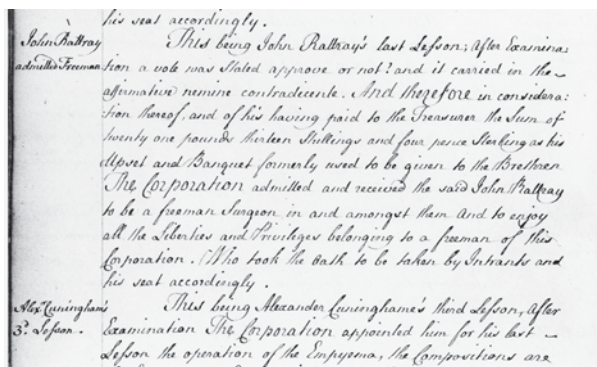 his seat accordingly.
John Rattray
admitted Freeman
This being John Rattray's last Lesson; After Examina:
tion a vote was Stated approve or not? and it carried in the
affirmative nemine contradicente. And therefore in considera:
tion thereof, and of his having paid to the Treasurer the Sum of
twenty one pounds thirteen Shillings and four pence Sterling as his
Upset and Banquet formerly used to be given to the Brethren
The Corporation admitted and received the said John Rattray
to be a freeman Surgeon in and amongst them And to enjoy
all the Liberties and Priviledges belonging to a freeman of this
Corporation. Who took the Oath to be taken by Intrants and
his seat accordingly.
Alexr. Cuningham's
3d. Lesson.
This being Alexander Cuninghame's third Lesson, After
Examination The Corporation appointed him for his last
Lesson the operation of the Empyema, the Compositions are